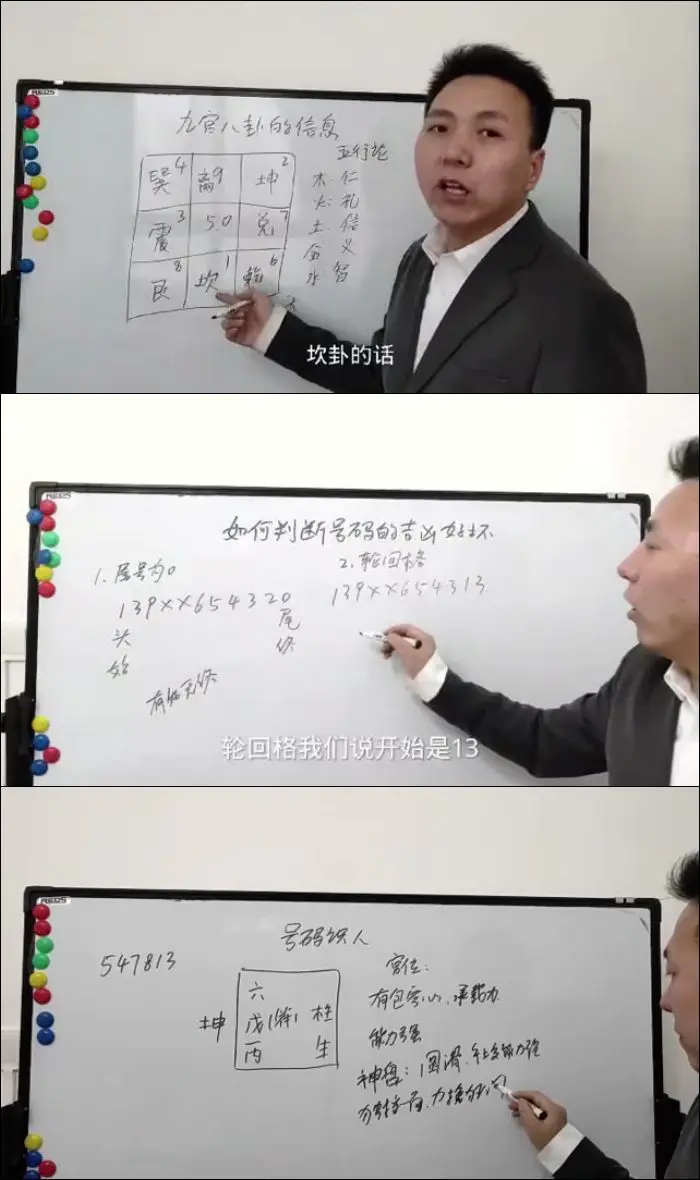 九宫八卦的信息
五行论
巽4 离9 坤2
震3 5.0 兑7
艮8 坎1 乾6
木:仁
火:礼
土:信
金 义
水:智
坎卦的话
如何判断号码的吉凶好坏
1.尾号为0
2.轮回格
139XX654320
139XX654313
头
尾
始
终
有始无终
轮回格我们说开始是13
号码识人
547813
宫位:
有包容心、承载力
能力强
坤
六
戊 柱
丙 生
神煞:圆滑、社会能力强